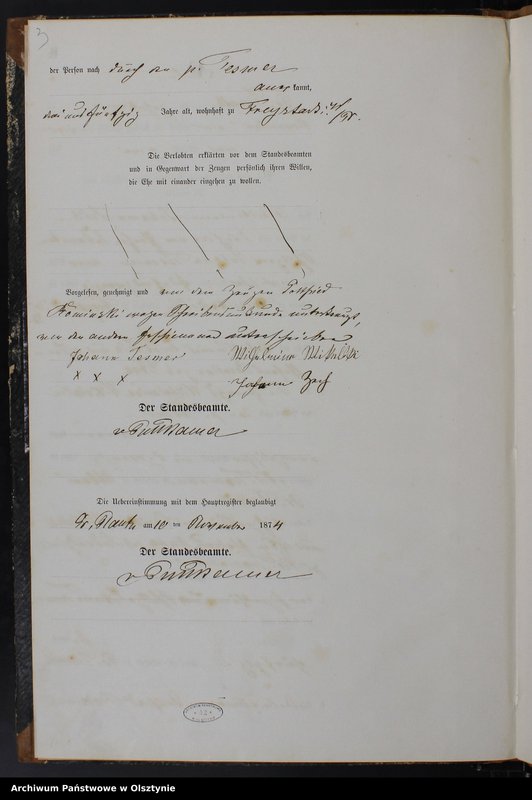 3
der Person nach durch den p. Tesmer
aner kannt,
drei und fünfzig Jahre alt, wohnhaft zu Freystadt
Die Verlobten erklärten vor dem Standesbeamten
und in Gegenwart der Zeugen persönlich ihren Willen,
die Ehe mit einander eingehen zu wollen.
Vorgelesen, genehmigt und von dem Zeugen Gottfried
Kominski wegen Schreibensunkunde unterkreuzt,
von den andern Erschienenen unterschrieben
Johann Tesmer Wilhelmine
x x x Johann
Der Standesbeamte.
v Puttkamer
Die Uebereinstimmung mit dem Hauptregister beglaubigt
Gr. Plauth am 10 ten November 1874
Der Standesbeamte.
v Puttkamer
Archiwum Państwowe w Olsztynie